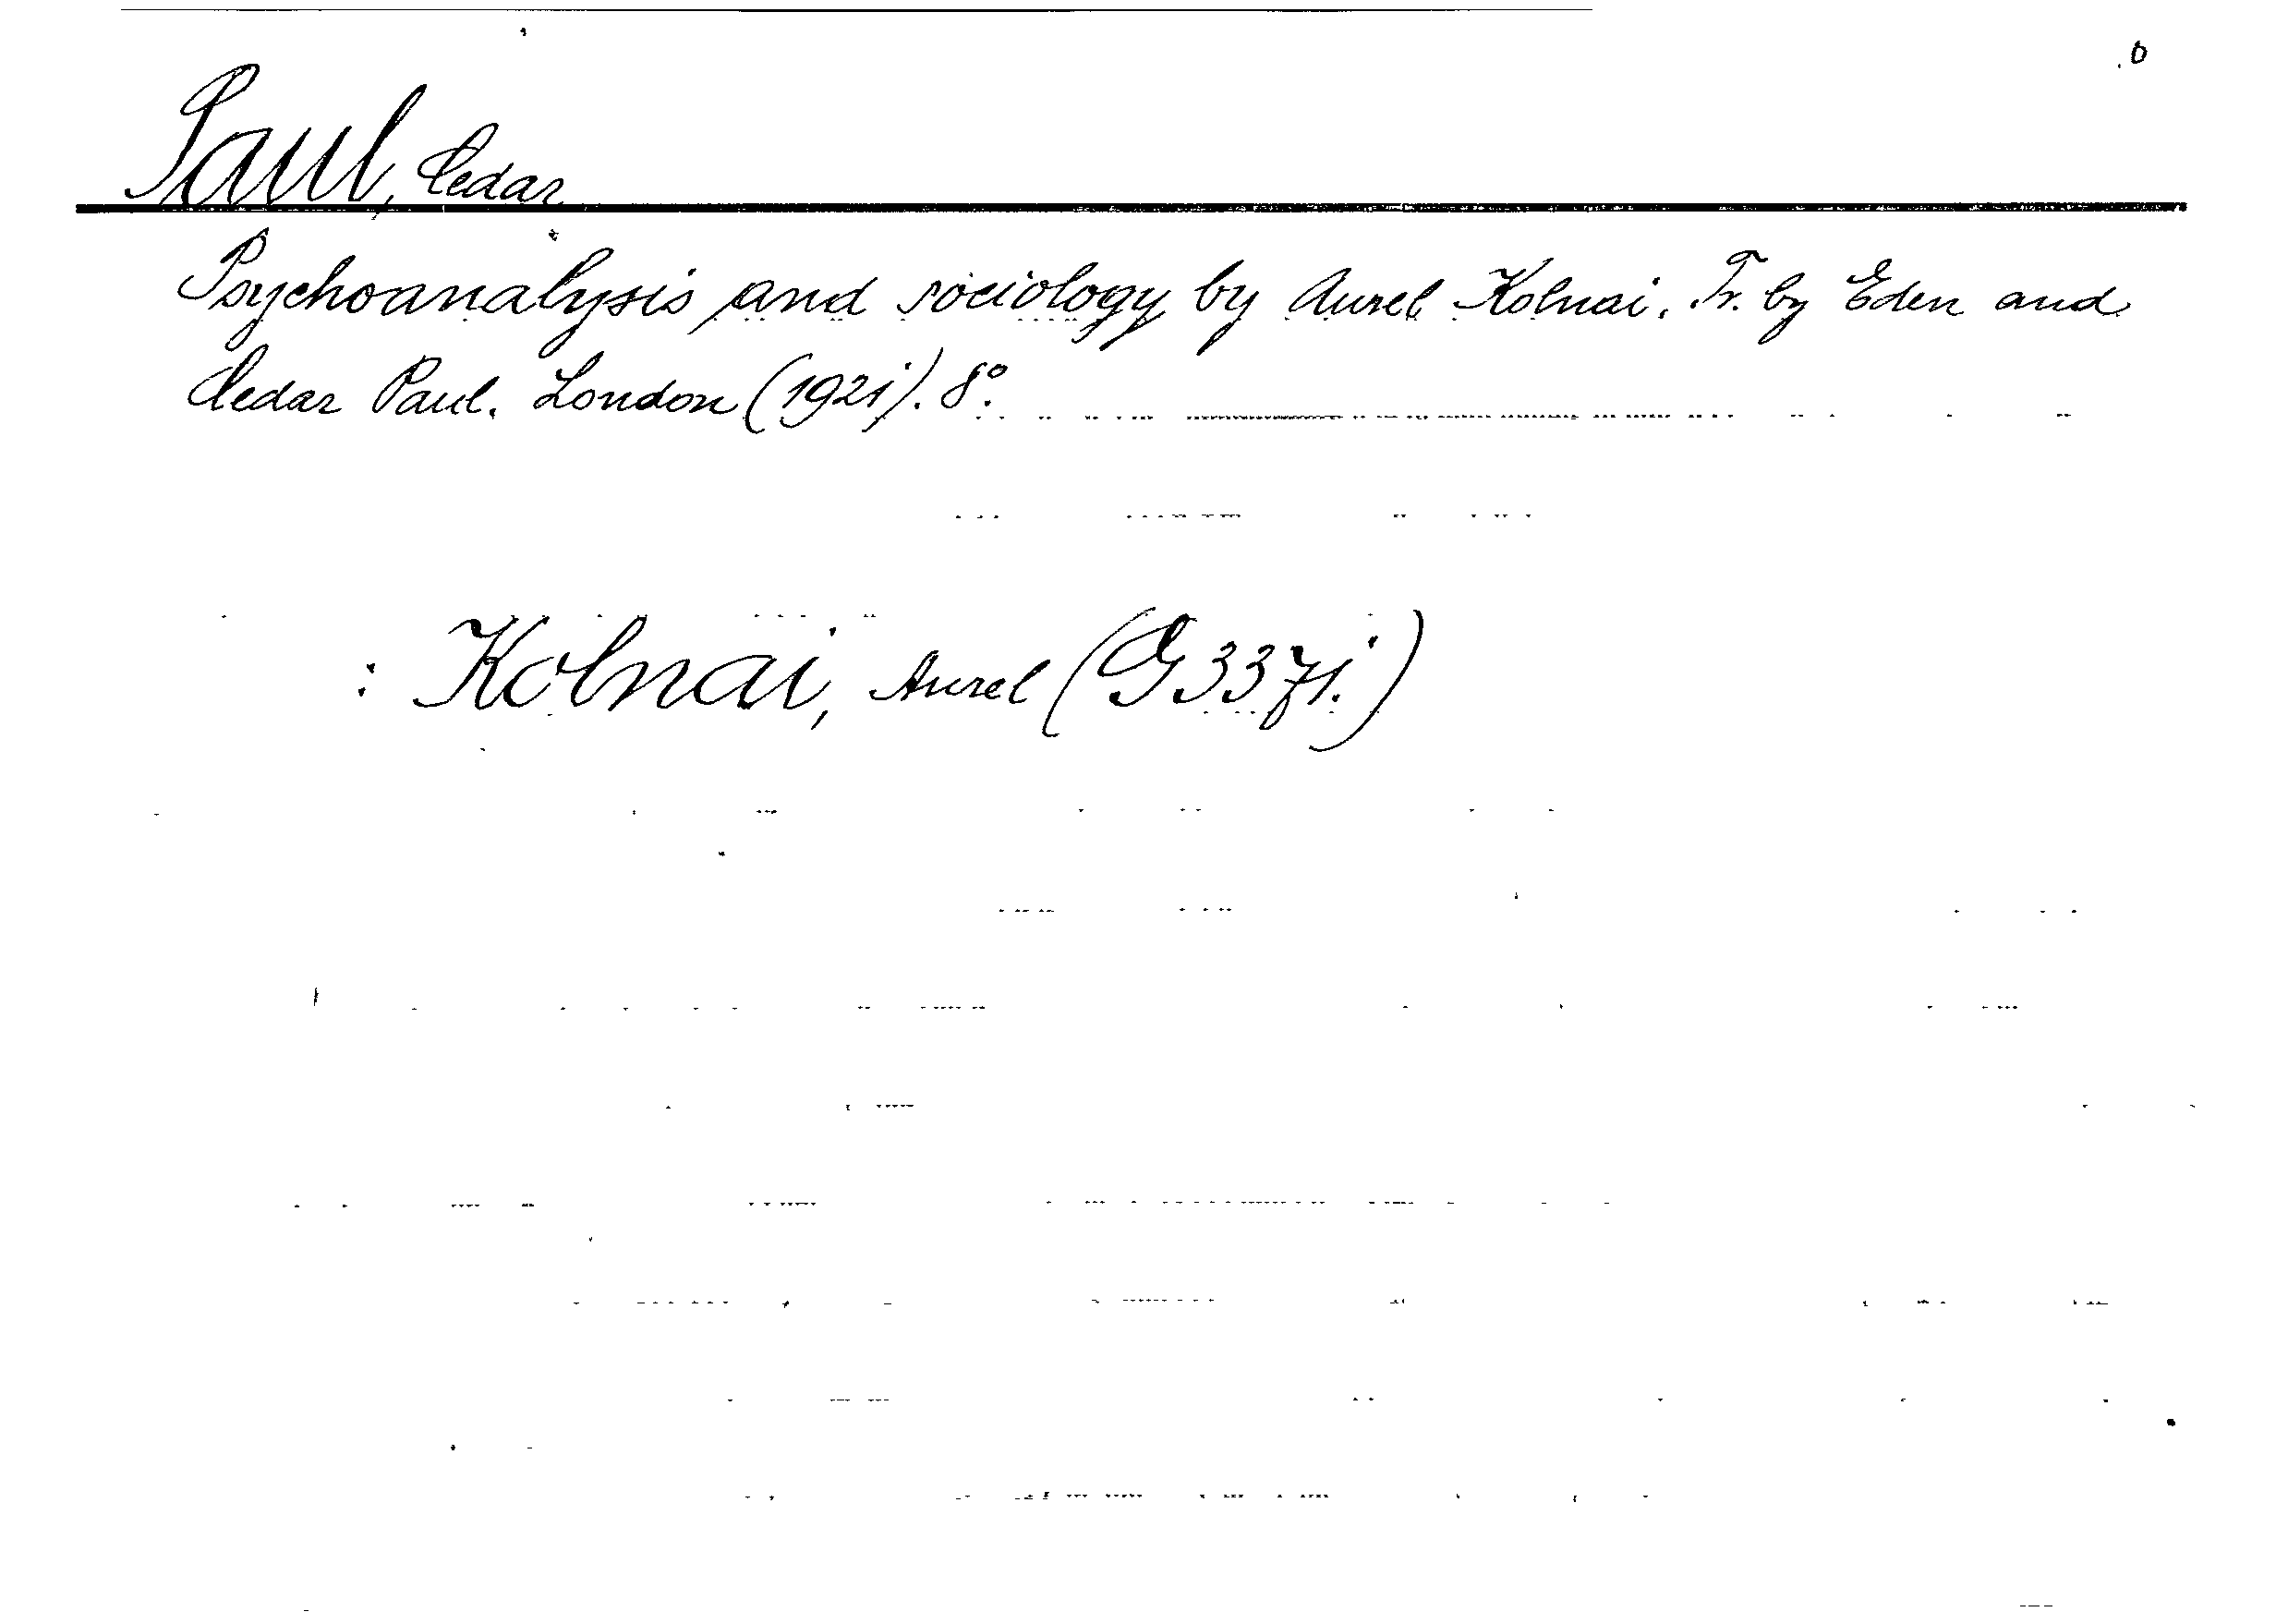 b
Paul, Cedar
Psychoanalysis and sociology by Aurel Kolnai. Tr. by Eden and
Cedar Paul. London (1921). 8°.
: Kolnai, Aurel (G 3371.)